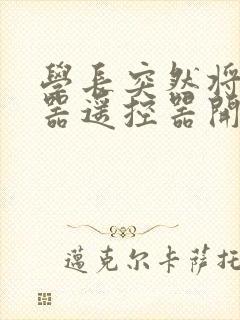 學長突然將
器遥控器開
邁克尔卡萨托